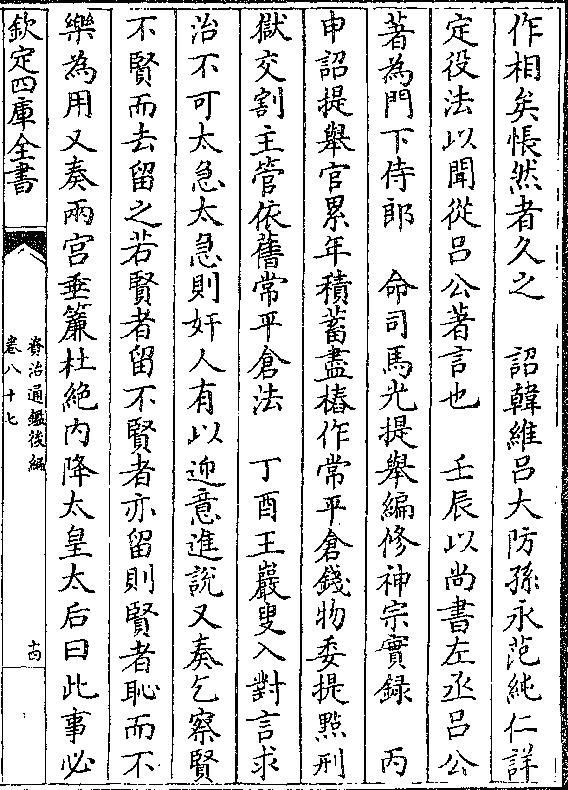 作相矣悵然者久之　詔韓維呂大防孫永范純仁詳
定役法以聞從呂公著言也　壬辰以尚書左丞呂公
著為門下侍郎　命司馬光提舉編修神宗實録　丙
申詔提舉官累年積蓄盡樁作常平倉錢物委提㸃刑
獄交割主管依舊常平倉法　丁酉王巖叟入對言求
治不可太急太急則奸人有以迎意進說又奏乞察賢
不賢而去留之若賢者留不賢者亦留則賢者恥而不
樂為用又奏兩宫垂簾杜絶内降太皇太后曰此事必
欽定四庫全書
資治通鑑後編
卷八十七
十四